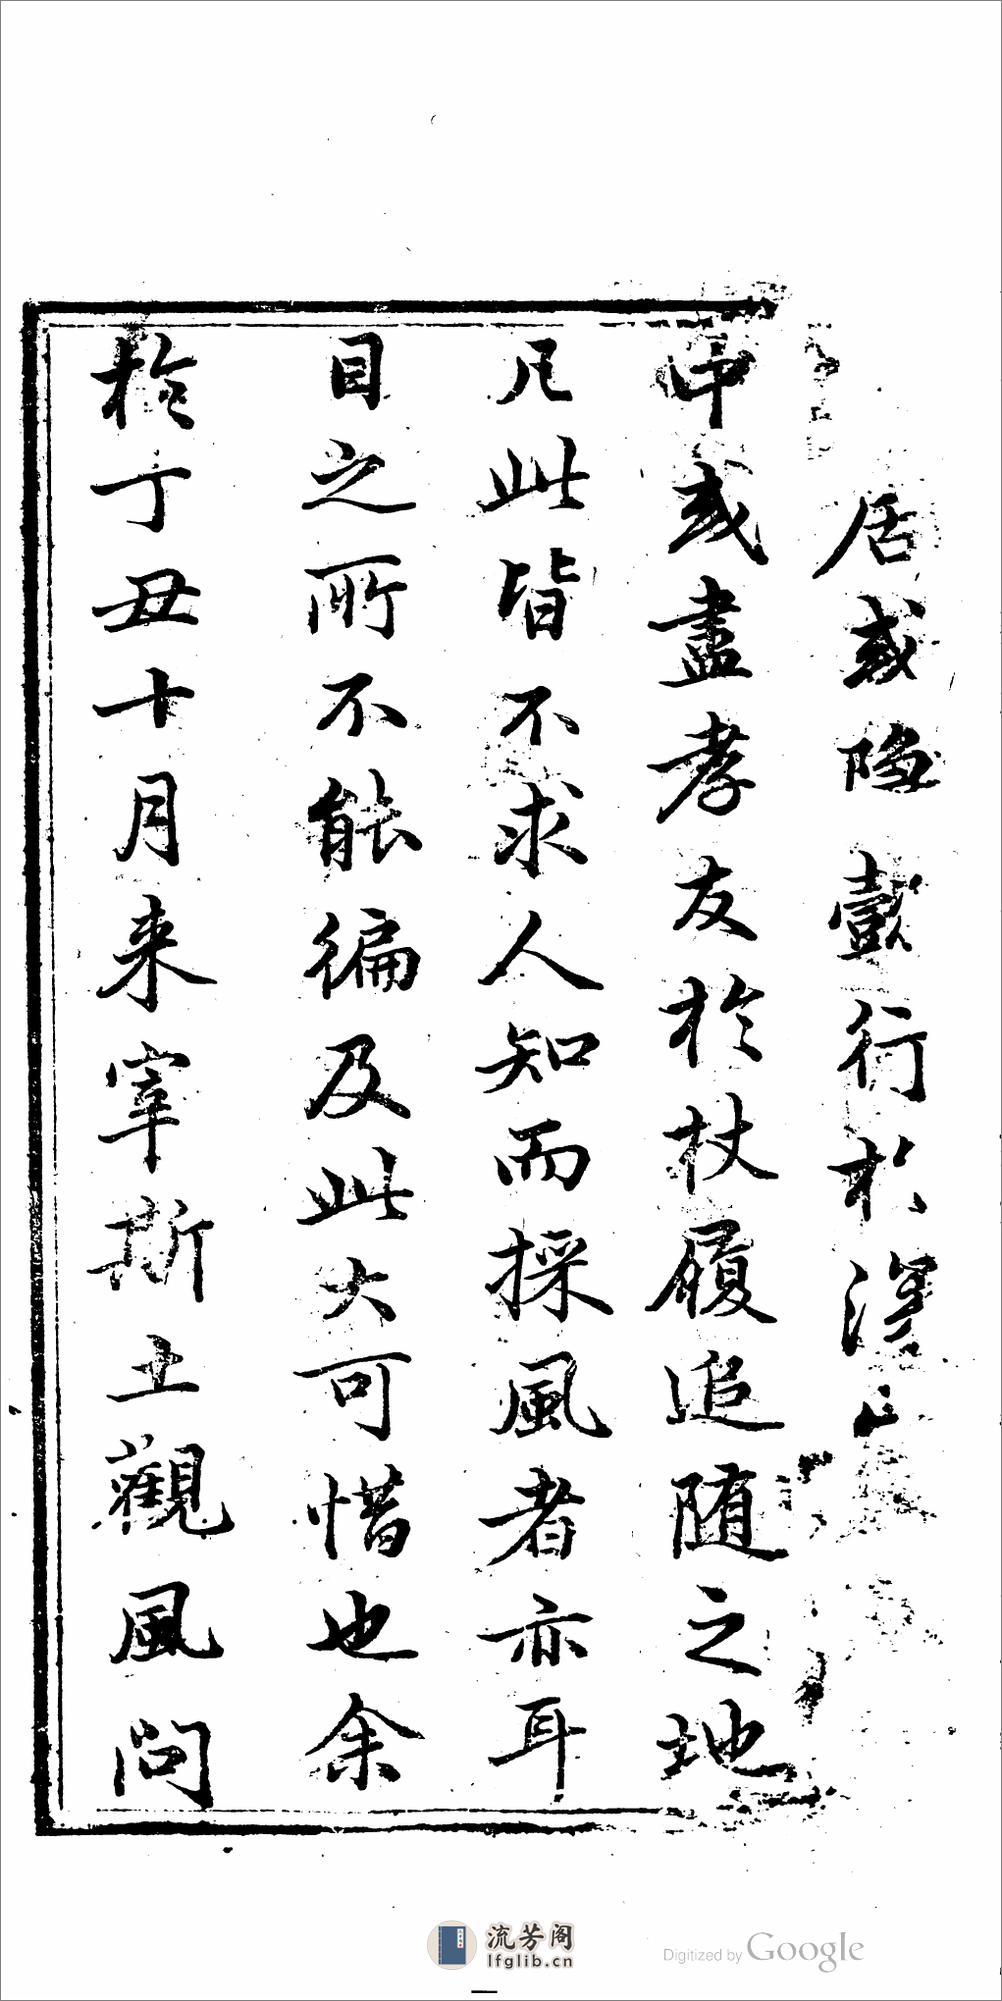 居或隐懿行於深
中或盡孝友於杖履追随之地
凡此皆不求人知而採風者亦耳
目之所不能徧及此大可惜也余
於丁丑十月来宰斯土觀風問
流芳阁
lfglib.cn
Digitized by Google